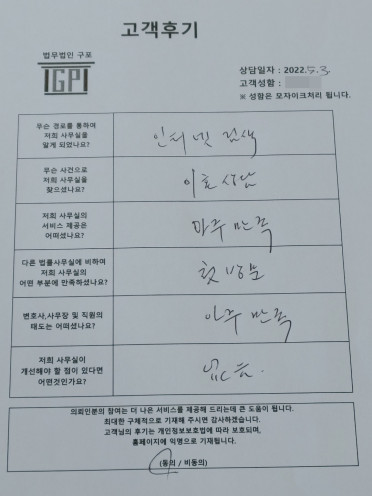 고객후기
법무법인 구포
IGPI
상담일자 : 2022.5.3.
고객성함 :
※ 성함은 모자이크처리 됩니다.
무슨 경로를 통하여
저희 사무실을
알게 되었나요?
인터넷 검색
무슨 사건으로
저희 사무실을
찾으셨나요?
이혼 상담
저희 사무실의
서비스 제공은
어떠셨나요?
아주 만족
다른 법률사무실에 비하여
저희 사무실의
어떤 부분에 만족하셨나요?
첫 방문
변호사,사무장 및 직원의
태도는 어떠셨나요?
아주 만족
저희 사무실이
개선해야 할 점이 있다면
어떤것인가요?
없음.
의뢰인분의 참여는 더 나은 서비스를 제공해 드리는데 큰 도움이 됩니다.
최대한 구체적으로 기재해 주시면 감사하겠습니다.
고객님의 후기는 개인정보보호법에 따라 보호되며,
홈페이지에 익명으로 기재됩니다.
(동의 / 비동의)